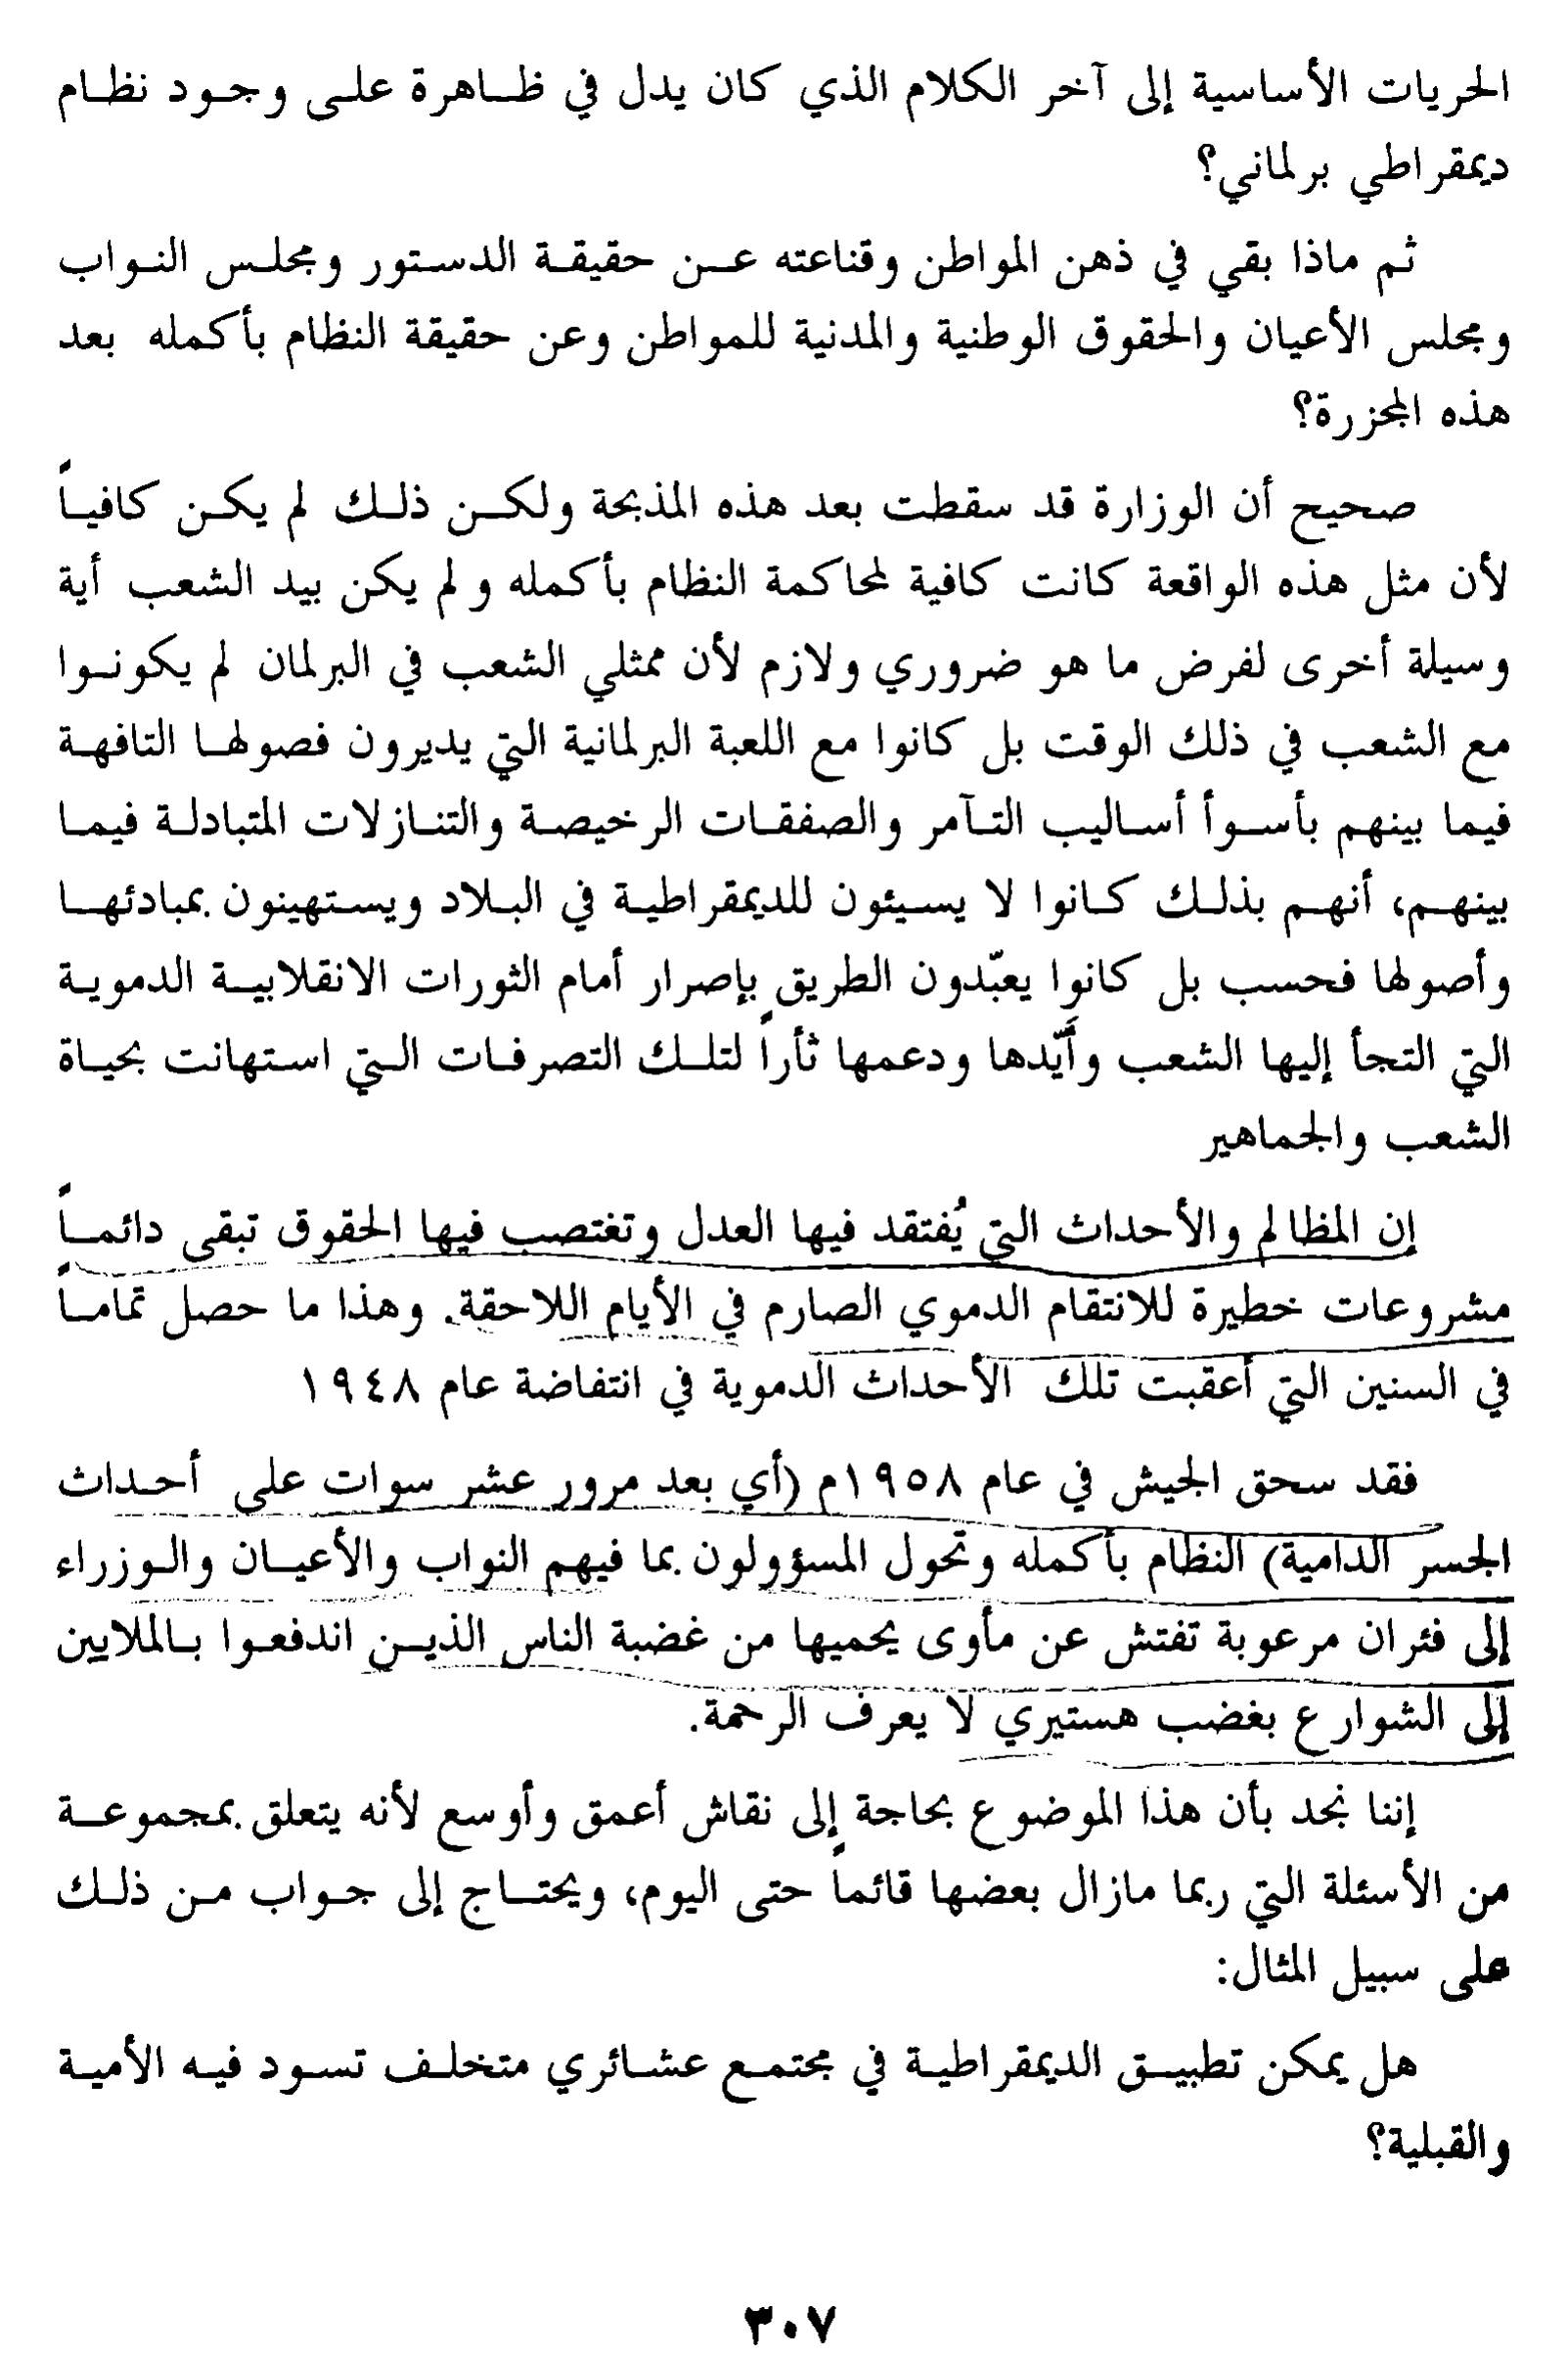 الحريات الأساسية إلى آخر الكلام الذي كان يدل في ظاهرة على وجود نظام
ديمقراطي برلماني؟
ثم ماذا بقي في ذهن المواطن وقناعته عن حقيقة الدستور ومجلس النواب
ومجلس الأعيان والحقوق الوطنية والمدنية للمواطن وعن حقيقة النظام بأكمله بعد
هذه المجزرة؟
صحيح أن الوزارة قد سقطت بعد هذه المذبحة ولكن ذلك لم يكن كافياً
لأن مثل هذه الواقعة كانت كافية لمحاكمة النظام بأكمله ولم يكن بيد الشعب أية
وسيلة أخرى لفرض ما هو ضروري ولازم لأن ممثلي الشعب في البرلمان لم يكونوا
مع الشعب في ذلك الوقت بل كانوا مع اللعبة البرلمانية التي يديرون فصولها التافهة
فيما بينهم بأسوأ أساليب التآمر والصفقات الرخيصة والتنازلات المتبادلة فيما
بينهم، أنهم بذلك كانوا لا يسيئون للديمقراطية في البلاد ويستهينون بمبادئها
وأصولها فحسب بل كانوا يعبّدون الطريق بإصرار أمام الثورات الانقلابية الدموية
التي التجأ إليها الشعب وأَيّدها ودعمها ثأراً لتلك التصرفات التي استهانت بحياة
الشعب والجماهير
إن المظالم والأحداث التي يُفتقد فيها العدل وتغتصب فيها الحقوق تبقى دائماً
مشروعات خطيرة للانتقام الدموي الصارم في الأيام اللاحقة. وهذا ما حصل تماماً
في السنين التي أعقبت تلك الأحداث الدموية في انتفاضة عام ١٩٤٨
فقد سحق الجيش في عام ١٩٥٨م (أي بعد مرور عشر سوات على أحداث
الجسر الدامية) النظام بأكمله وتحول المسؤولون بما فيهم النواب والأعيان والوزراء
إلى فئران مرعوبة تفتش عن مأوى يحميها من غضبة الناس الذين اندفعوا بالملايين
إلى الشوارع بغضب هستيري لا يعرف الرحمة.
إننا نجد بأن هذا الموضوع بحاجة إلى نقاش أعمق وأوسع لأنه يتعلق بمجموعة
من الأسئلة التي ربما مازال بعضها قائماً حتى اليوم، ويحتاج إلى جواب من ذلك
على سبيل المثال:
هل يمكن تطبيق الديمقراطية في مجتمع عشائري متخلف تسود فيه الأمية
والقبلية؟
٣٠٧